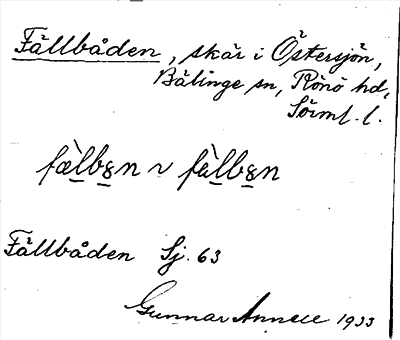 Fällbåden, skär i Östersjön,
Bälinge sn, Rönö hd,
Sörml. l.
fæ̀lbꞷn ~ fàlbꞷn
Fällbåden Sj. 63
Gunnar Annell 1933